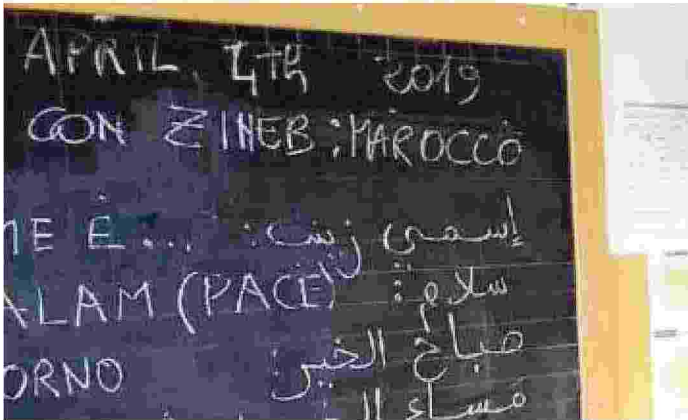 APRIL, 4TH 2019
CON ZINEB: MAROCCO
ME È... إسمي زينب:
ALAM (PACE) سلام:
ORNO صباح الخير:
مساء